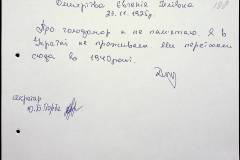 Дмитрівна Євгенія Іллівна
23.11.1925р.
Про голодомор я не памятаю. Я в
Україні не проживала. Ми переїхали
сюда во 1940 році.
секретар